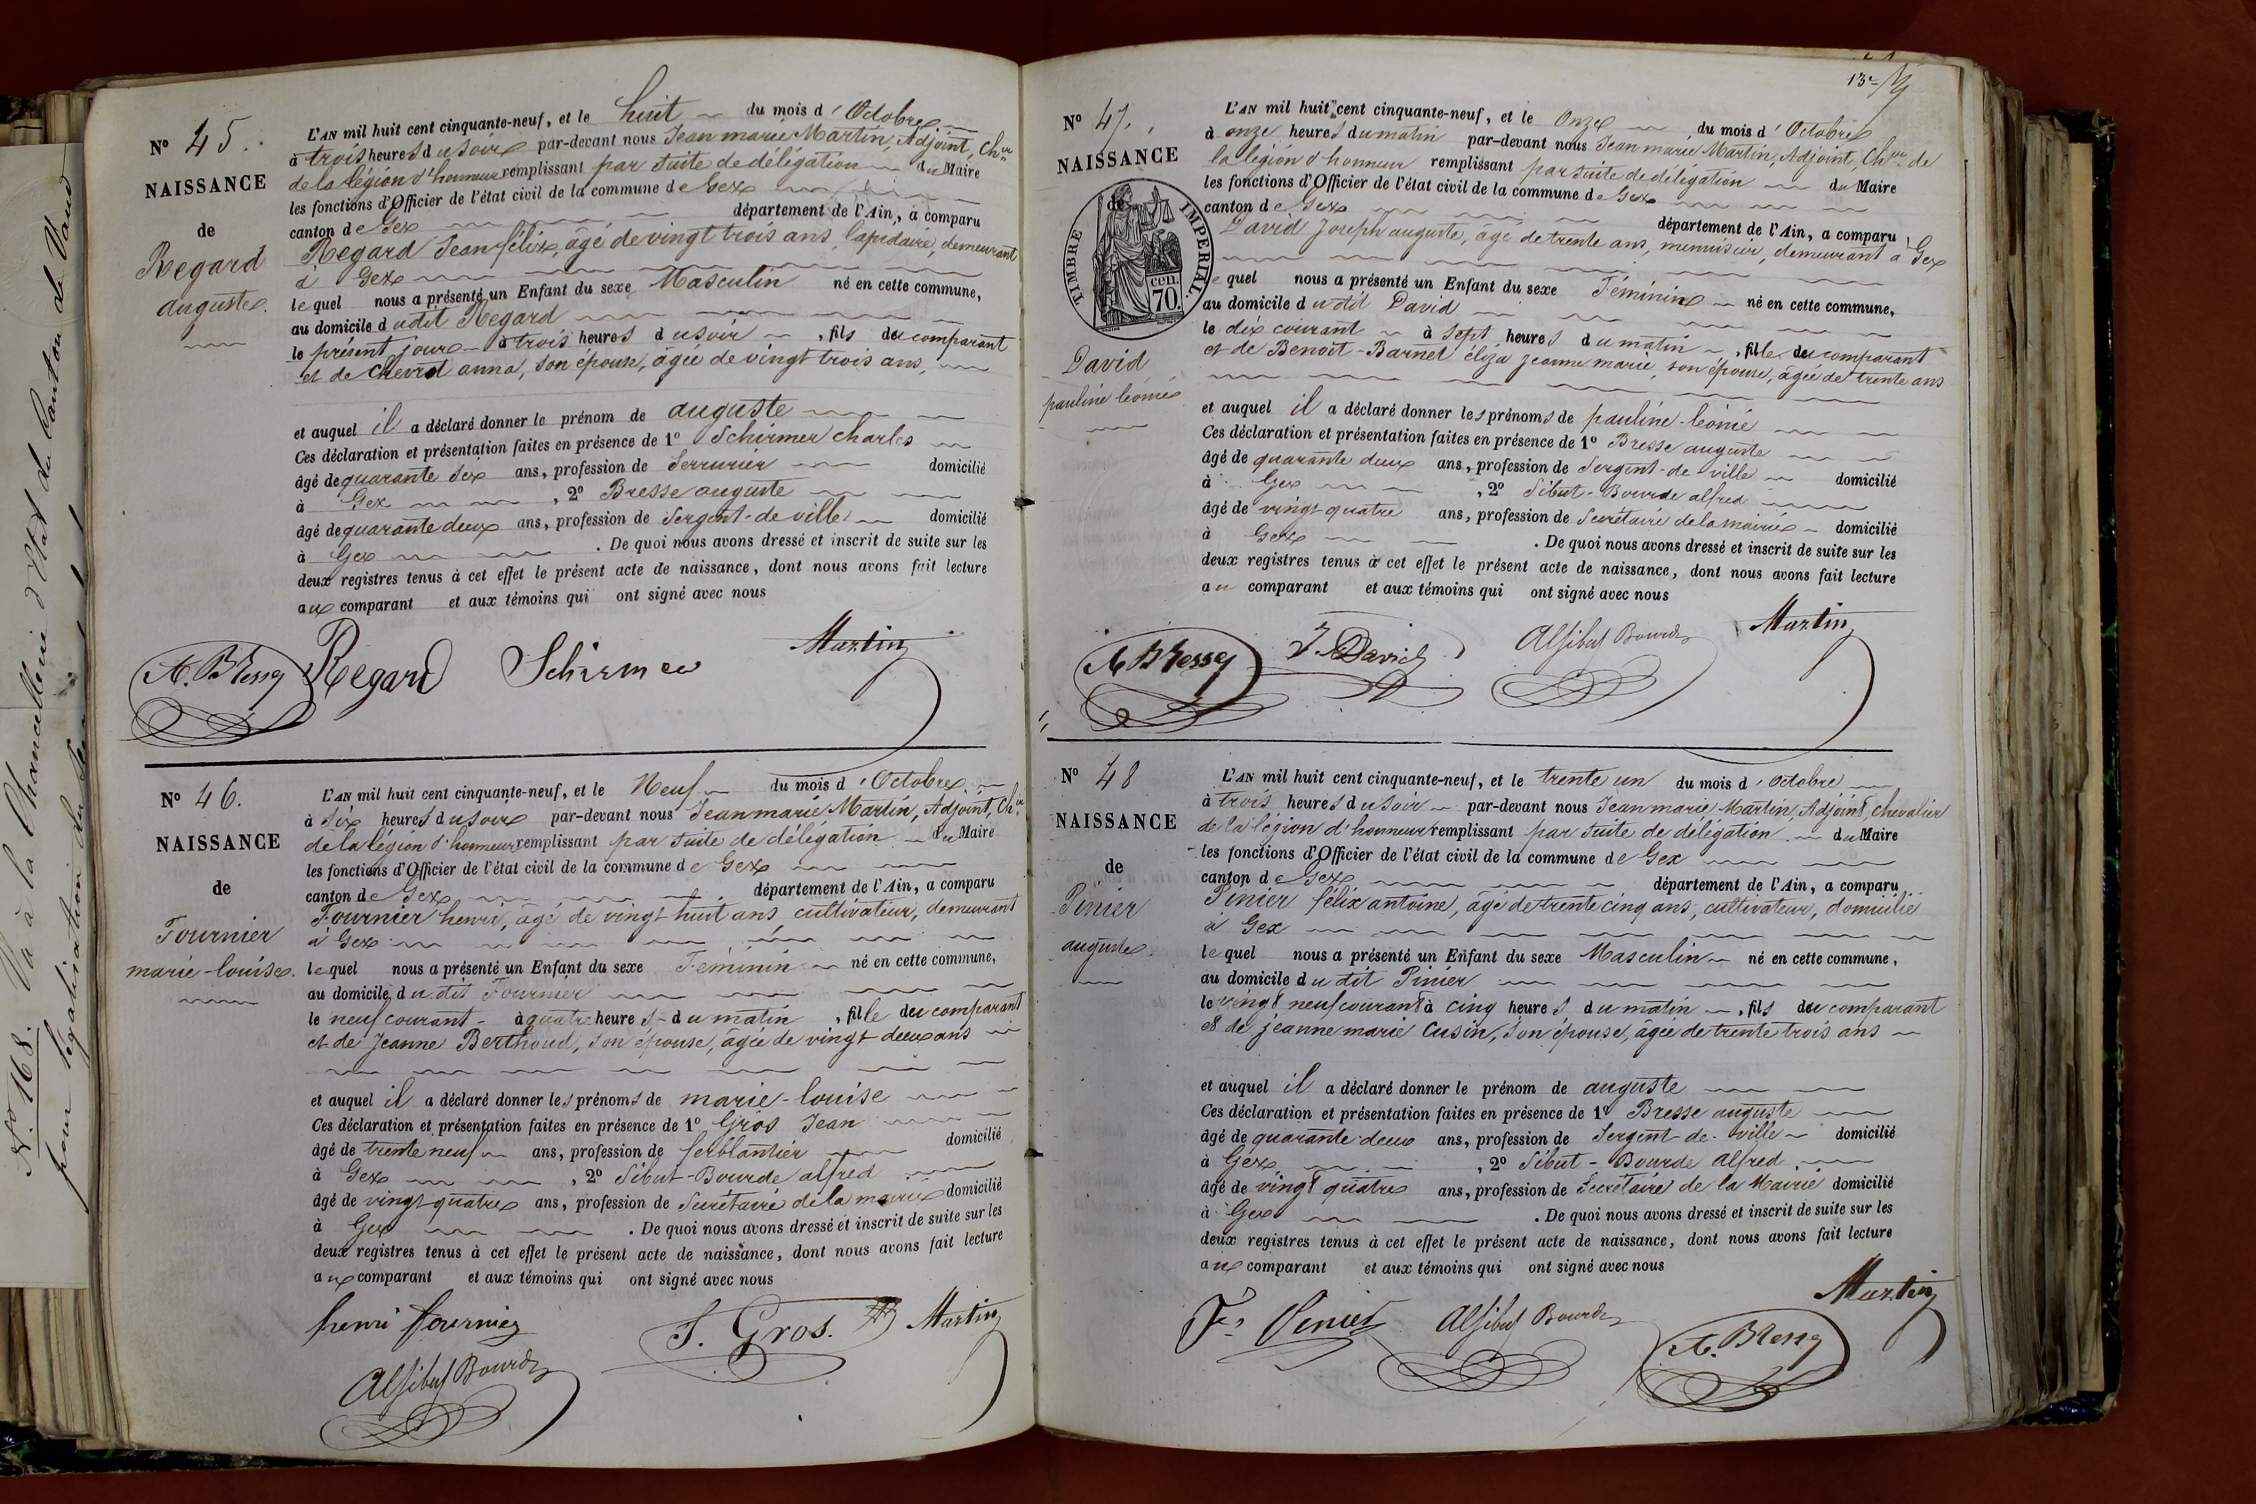 N.o 168. Va à la Chancellerie d'Etat du Canton de Vaud
pour légalisation du
N° 45.
NAISSANCE
de
Regard
auguste.
L'AN mil huit cent cinquante-neuf, et le huit du mois d'Octobre
à trois heures du soir par-devant nous Jean marie Martin, Adjoint, Cher
de la légion d'honneur remplissant par suite de délégation du Maire
les fonctions d'Officier de l'état civil de la commune de Gex
canton de Gex département de l'Ain, a comparu
Regard Jean félix, âgé de vingt trois ans, lapidaire, demeurant
à Gex
lequel nous a présenté un Enfant du sexe Masculin né en cette commune,
au domicile dudit Regard
le présent jour à trois heures du soir, fils du comparant
et de Chevrol anna, son épouse, agée de vingt trois ans,
et auquel il a déclaré donner le prénom de auguste
Ces déclaration et présentation faites en présence de 1° Schirmer charles
âgé de quarante six ans, profession de Serrurier domicilié
à Gex, 2° Bresse auguste
âgé de quarante deux ans, profession de Sergent-de ville domicilié
à Gex. De quoi nous avons dressé et inscrit de suite sur les
deux registres tenus à cet effet le présent acte de naissance, dont nous avons fait lecture
aux comparant et aux témoins qui ont signé avec nous
A. Bresse Regard Schirmer Martin
N° 46.
NAISSANCE
de
Fournier
marie-louise.
L'AN mil huit cent cinquante-neuf, et le Neuf du mois d'Octobre
à Six heures du soir par-devant nous Jean marie Martin, Adjoint, Cher
de la légion d'honneur remplissant par suite de délégation du Maire
les fonctions d'Officier de l'état civil de la commune de Gex
canton de Gex département de l'Ain, a comparu
Fournier henri, âgé de vingt huit ans cultivateur, demeurant
à Gex
lequel nous a présenté un Enfant du sexe Féminin né en cette commune,
au domicile du dit Fournier
le neuf courant à quatre heures du matin, fille du comparant
et de Jeanne Berthoud, son épouse, âgée de vingt deux ans
et auquel il a déclaré donner les prénoms de marie-louise
Ces déclaration et présentation faites en présence de 1° Gros Jean
âgé de trente neuf ans, profession de ferblantier domicilié
à Gex, 2° Sibut-Bourde alfred
âgé de vingt quatre ans, profession de Secrétaire de la mairie domicilié
à Gex. De quoi nous avons dressé et inscrit de suite sur les
deux registres tenus à cet effet le présent acte de naissance, dont nous avons fait lecture
aux comparant et aux témoins qui ont signé avec nous
henri fournier J. Gros. Martin
Al Sibut Bourde
13e
N° 47.
NAISSANCE
de
TIMBRE IMPERIAL.
CEN. 70.
David
pauline léonie
L'AN mil huit cent cinquante-neuf, et le Onze du mois d'Octobre
à onze heures du matin par-devant nous Jean marie Martin, Adjoint, Cher de
la légion d'honneur remplissant par suite de délégation du Maire
les fonctions d'Officier de l'état civil de la commune de Gex
canton de Gex département de l'Ain, a comparu
David Joseph auguste, âgé de trente ans, menuisier, demeurant à Gex
lequel nous a présenté un Enfant du sexe Féminin né en cette commune,
au domicile dudit David
le dix courant à sept heures du matin, fille du comparant
et de Benoit-Barnet éliza jeanne marie, son épouse, âgée de trente ans
et auquel il a déclaré donner les prénoms de pauline-léonie
Ces déclaration et présentation faites en présence de 1° Bresse auguste
âgé de quarante deux ans, profession de Sergent-de ville domicilié
à Gex, 2° Sibut-Bourde alfred
âgé de vingt quatre ans, profession de Secrétaire de la mairie domicilié
à Gex. De quoi nous avons dressé et inscrit de suite sur les
deux registres tenus à cet effet le présent acte de naissance, dont nous avons fait lecture
au comparant et aux témoins qui ont signé avec nous
A Bresse J. David Al Sibut Bourde Martin
N° 48
NAISSANCE
de
Pinier
auguste.
L'AN mil huit cent cinquante-neuf, et le trente un du mois d'Octobre
à trois heures du soir par-devant nous Jean marie Martin, Adjoint, chevalier
de la légion d'honneur remplissant par suite de délégation du Maire
les fonctions d'Officier de l'état civil de la commune de Gex
canton de Gex département de l'Ain, a comparu
Pinier félix antoine, âgé de trente cinq ans, cultivateur, domicilié
à Gex
lequel nous a présenté un Enfant du sexe Masculin né en cette commune,
au domicile du dit Pinier
le vingt neuf courant à cinq heures du matin, fils du comparant
et de jeanne marie Cusin, son épouse, âgée de trente trois ans
et auquel il a déclaré donner le prénom de auguste
Ces déclaration et présentation faites en présence de 1° Bresse auguste
âgé de quarante deux ans, profession de Sergent-de-ville domicilié
à Gex, 2° Sibut-Bourde alfred
âgé de vingt quatre ans, profession de Secrétaire de la Mairie domicilié
à Gex. De quoi nous avons dressé et inscrit de suite sur les
deux registres tenus à cet effet le présent acte de naissance, dont nous avons fait lecture
aux comparant et aux témoins qui ont signé avec nous
Fx Penier Al Sibut Bourde A. Bresse Martin